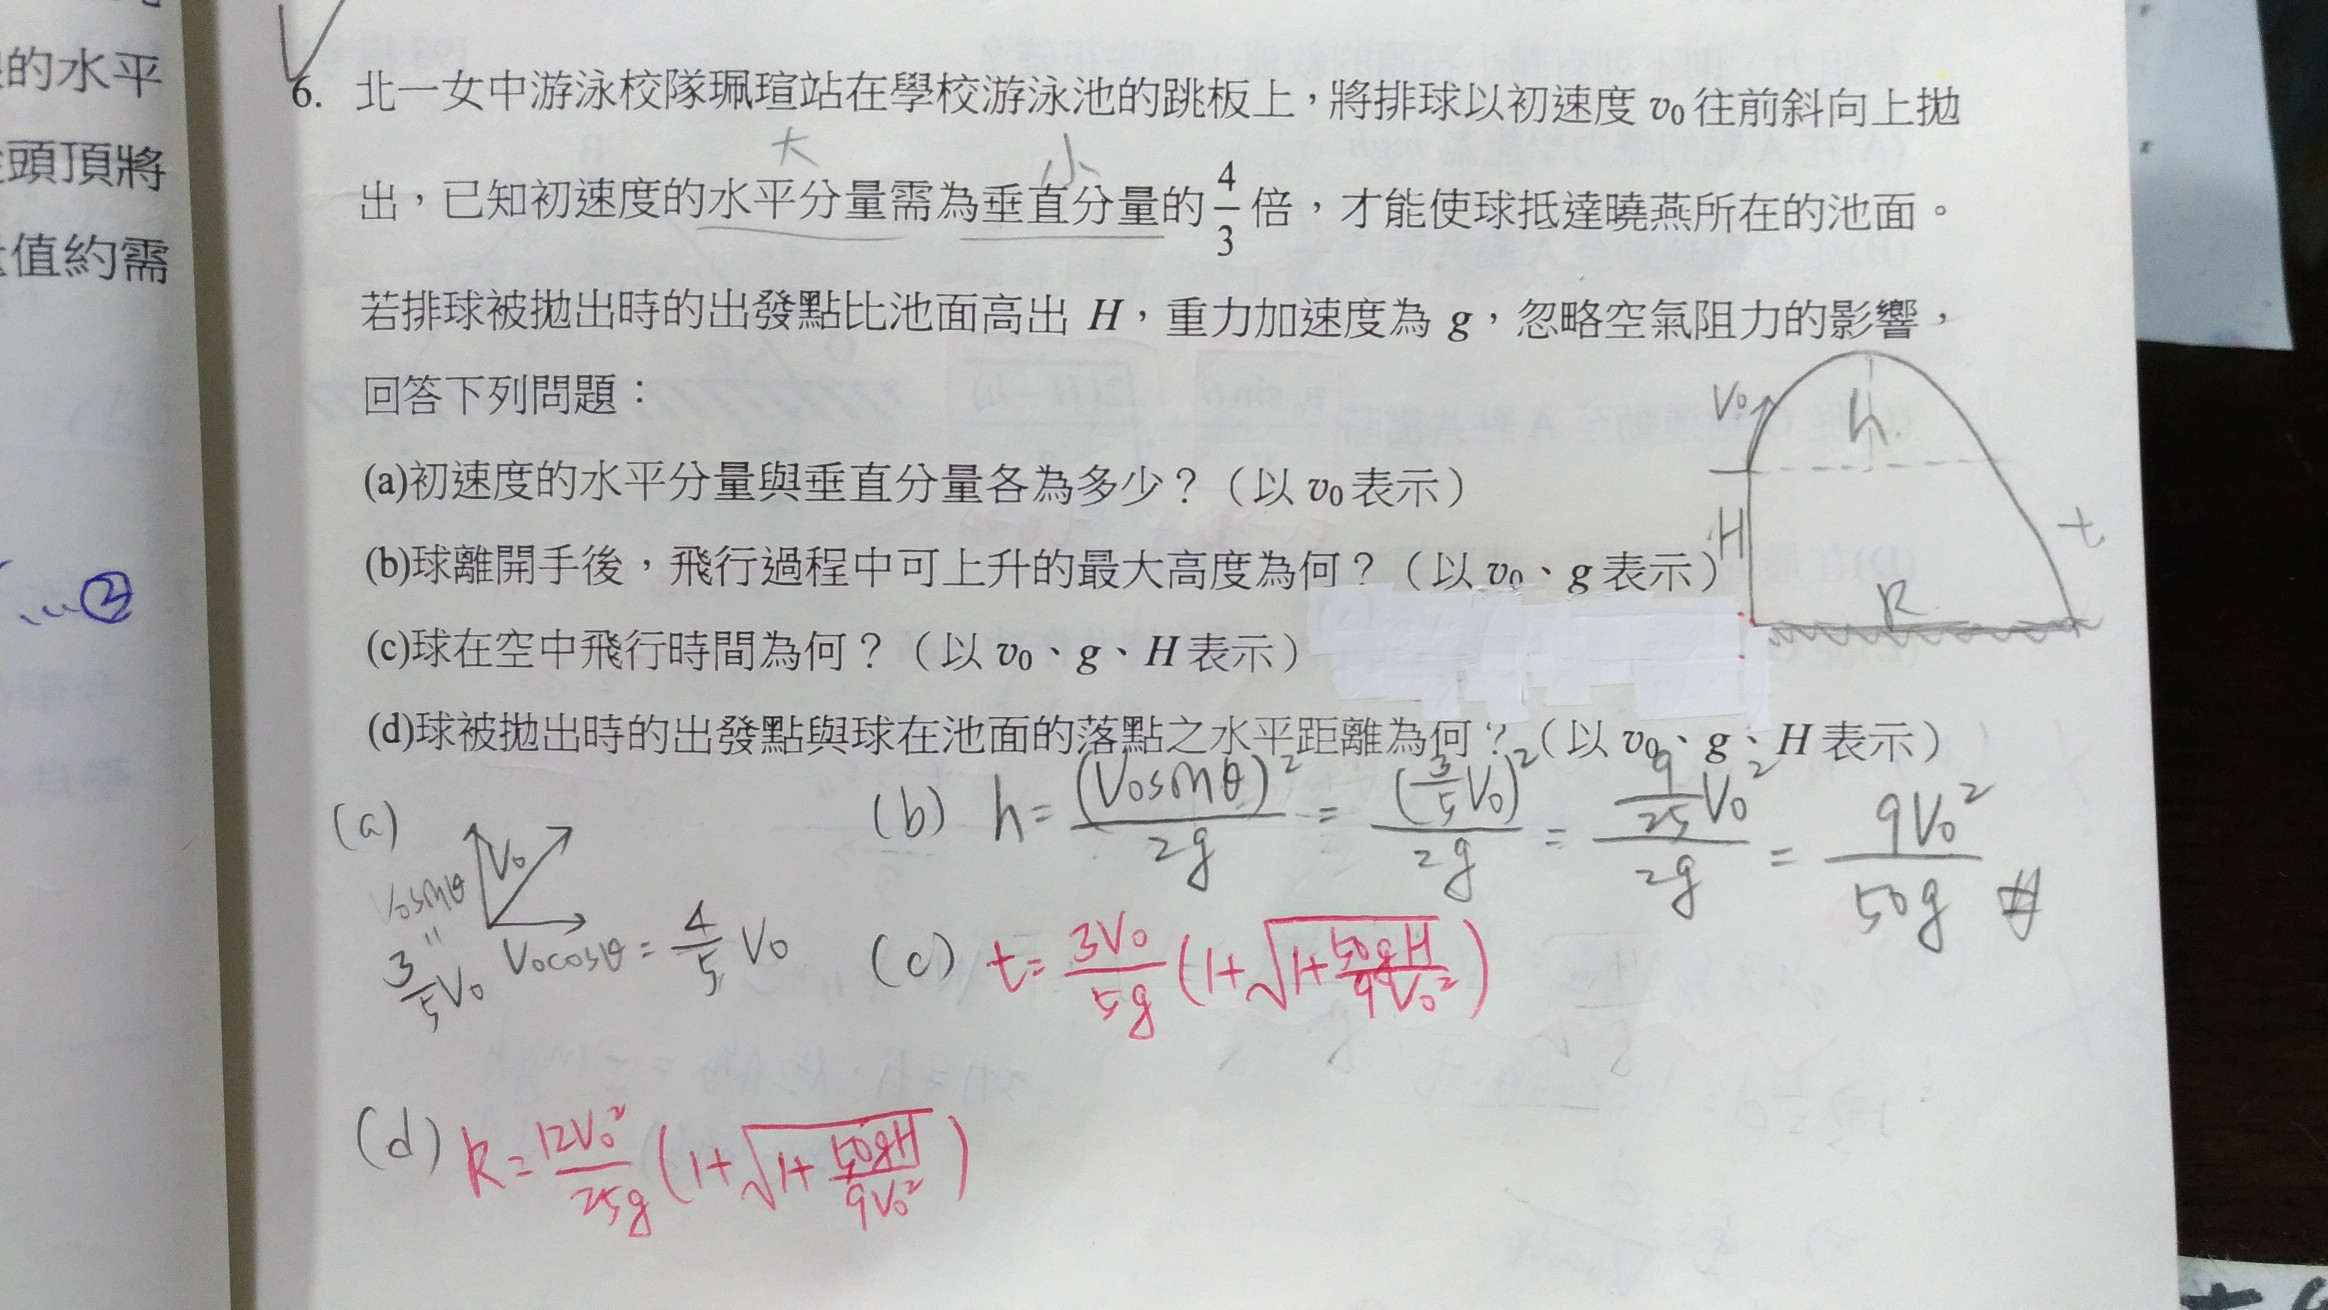 的水平
頭頂將
值約需
...②
6. 北一女中游泳校隊珮瑄站在學校游泳池的跳板上，將排球以初速度 v₀ 往前斜向上拋
大 小
出，已知初速度的水平分量需為垂直分量的 4/3 倍，才能使球抵達曉燕所在的池面。
若排球被拋出時的出發點比池面高出 H，重力加速度為 g，忽略空氣阻力的影響，
回答下列問題：
V₀ h
(a)初速度的水平分量與垂直分量各為多少？（以 v₀ 表示）
H t
(b)球離開手後，飛行過程中可上升的最大高度為何？（以 v₀、g 表示）
R
(c)球在空中飛行時間為何？（以 v₀、g、H 表示）
(d)球被拋出時的出發點與球在池面的落點之水平距離為何？（以 v₀、g、H 表示）
(a) V₀
V₀sinθ
"
3/5 V₀
V₀cosθ = 4/5 V₀
(b) h = (V₀sinθ)²/2g = (3/5 V₀)²/2g = 9/25 V₀²/2g = 9V₀²/50g #
(c) t = 3V₀/5g (1+√(1+50gH/9V₀²))
(d) R = 12V₀²/25g (1+√(1+50gH/9V₀²))